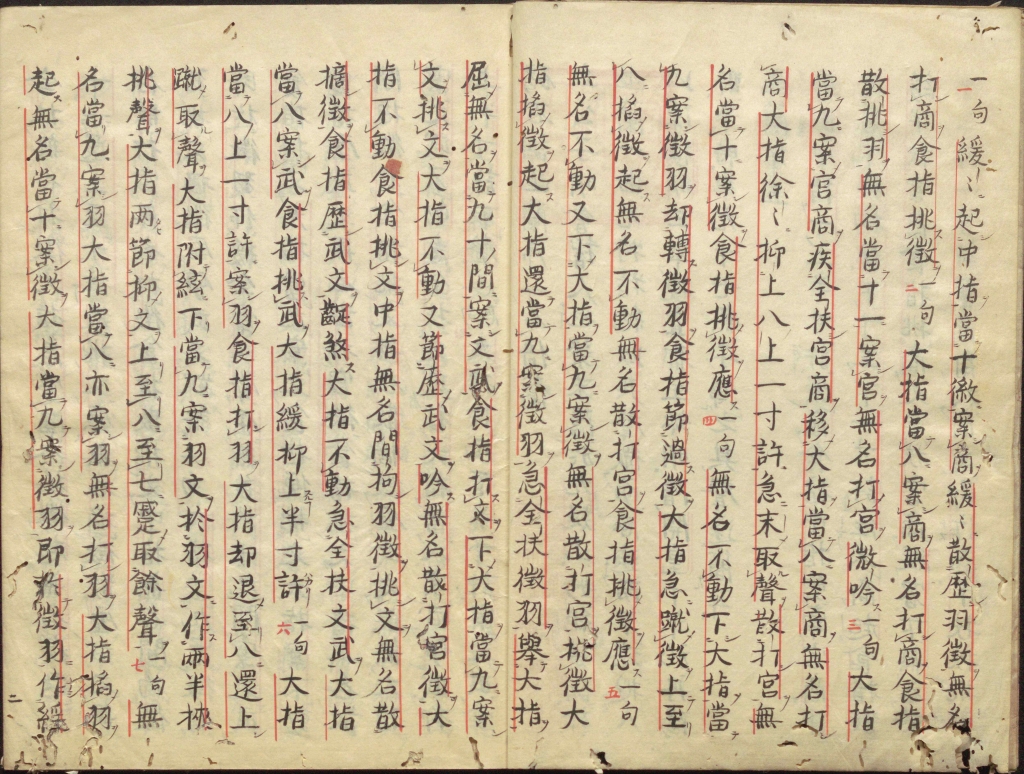 一句 緩〻起中指當十徽案商緩〻散歷羽徵無名
打商食指挑徵一句 大指當八案商無名打商食指
散挑羽無名當十一案宮無名打宮微吟一句大指
當九案宮商疾全扶宮商移大指當八案商無名打
商大指徐〻抑上八上一寸許急末取聲散打宮無
名當十案徵食指挑徵應一句無名不動下大指當
九案徵羽却轉徵羽食指節過徵大指急蹴徵上至
八掐徵起無名不動無名散打宮食指挑徵應一句
無名不動又下大指當九案徵無名散打宮挑徵大
指掐徵起大指還當九案徵羽急全扶徵羽舉大指
屈無名當九十間案文武食指打文下大指當九案
文挑文大指不動又節歷武文吟無名散打宮徵大
指不動食指挑文中指無名間拘羽徵挑文無名散
擿徵食指歷武文齪煞大指不動急全扶文武大指
當八案武食指挑武大指緩抑上半寸許一句大指
當八上一寸許案羽食指打羽大指却退至八還上
蹴取聲大指附絃下當九案羽文於羽文作兩半扶
挑聲大指两節抑文上至八至七蹙取餘聲一句無
名當九案羽大指當八亦案羽無名打羽大指掐羽
起無名當十案徵大指當九案徵羽即於徵羽作緩
一
二
三
四
五
六
七
二